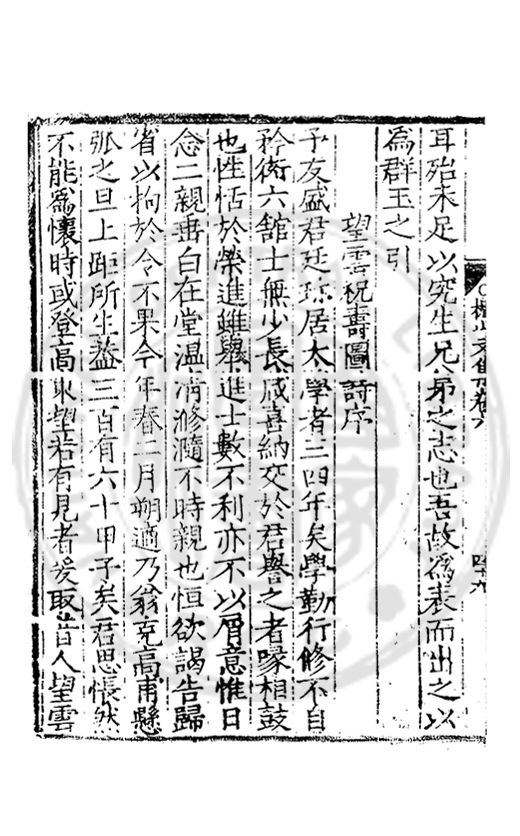 耳殆未足以究生兄弟之志也吾故為表而出之以
為群玉之引
望雲祝壽圖詩序
予友盛君廷珎居太學者三四年矣學勤行修不自
矜衒六舘士無少長咸喜納交於君譽之者喙相鼓
也性恬於榮進雖舉進士數不利亦不以屑意惟日
念二親垂白在堂溫凊滫瀡不時親也恒欲謁告歸
省以拘於令不果今年春二月朔適乃翁克高甫懸
弧之旦上距所生葢三百有六十甲子矣君思悵然
不能為懷時或登高東望若有見者爰取昔人望雲
文集卷六
四十九